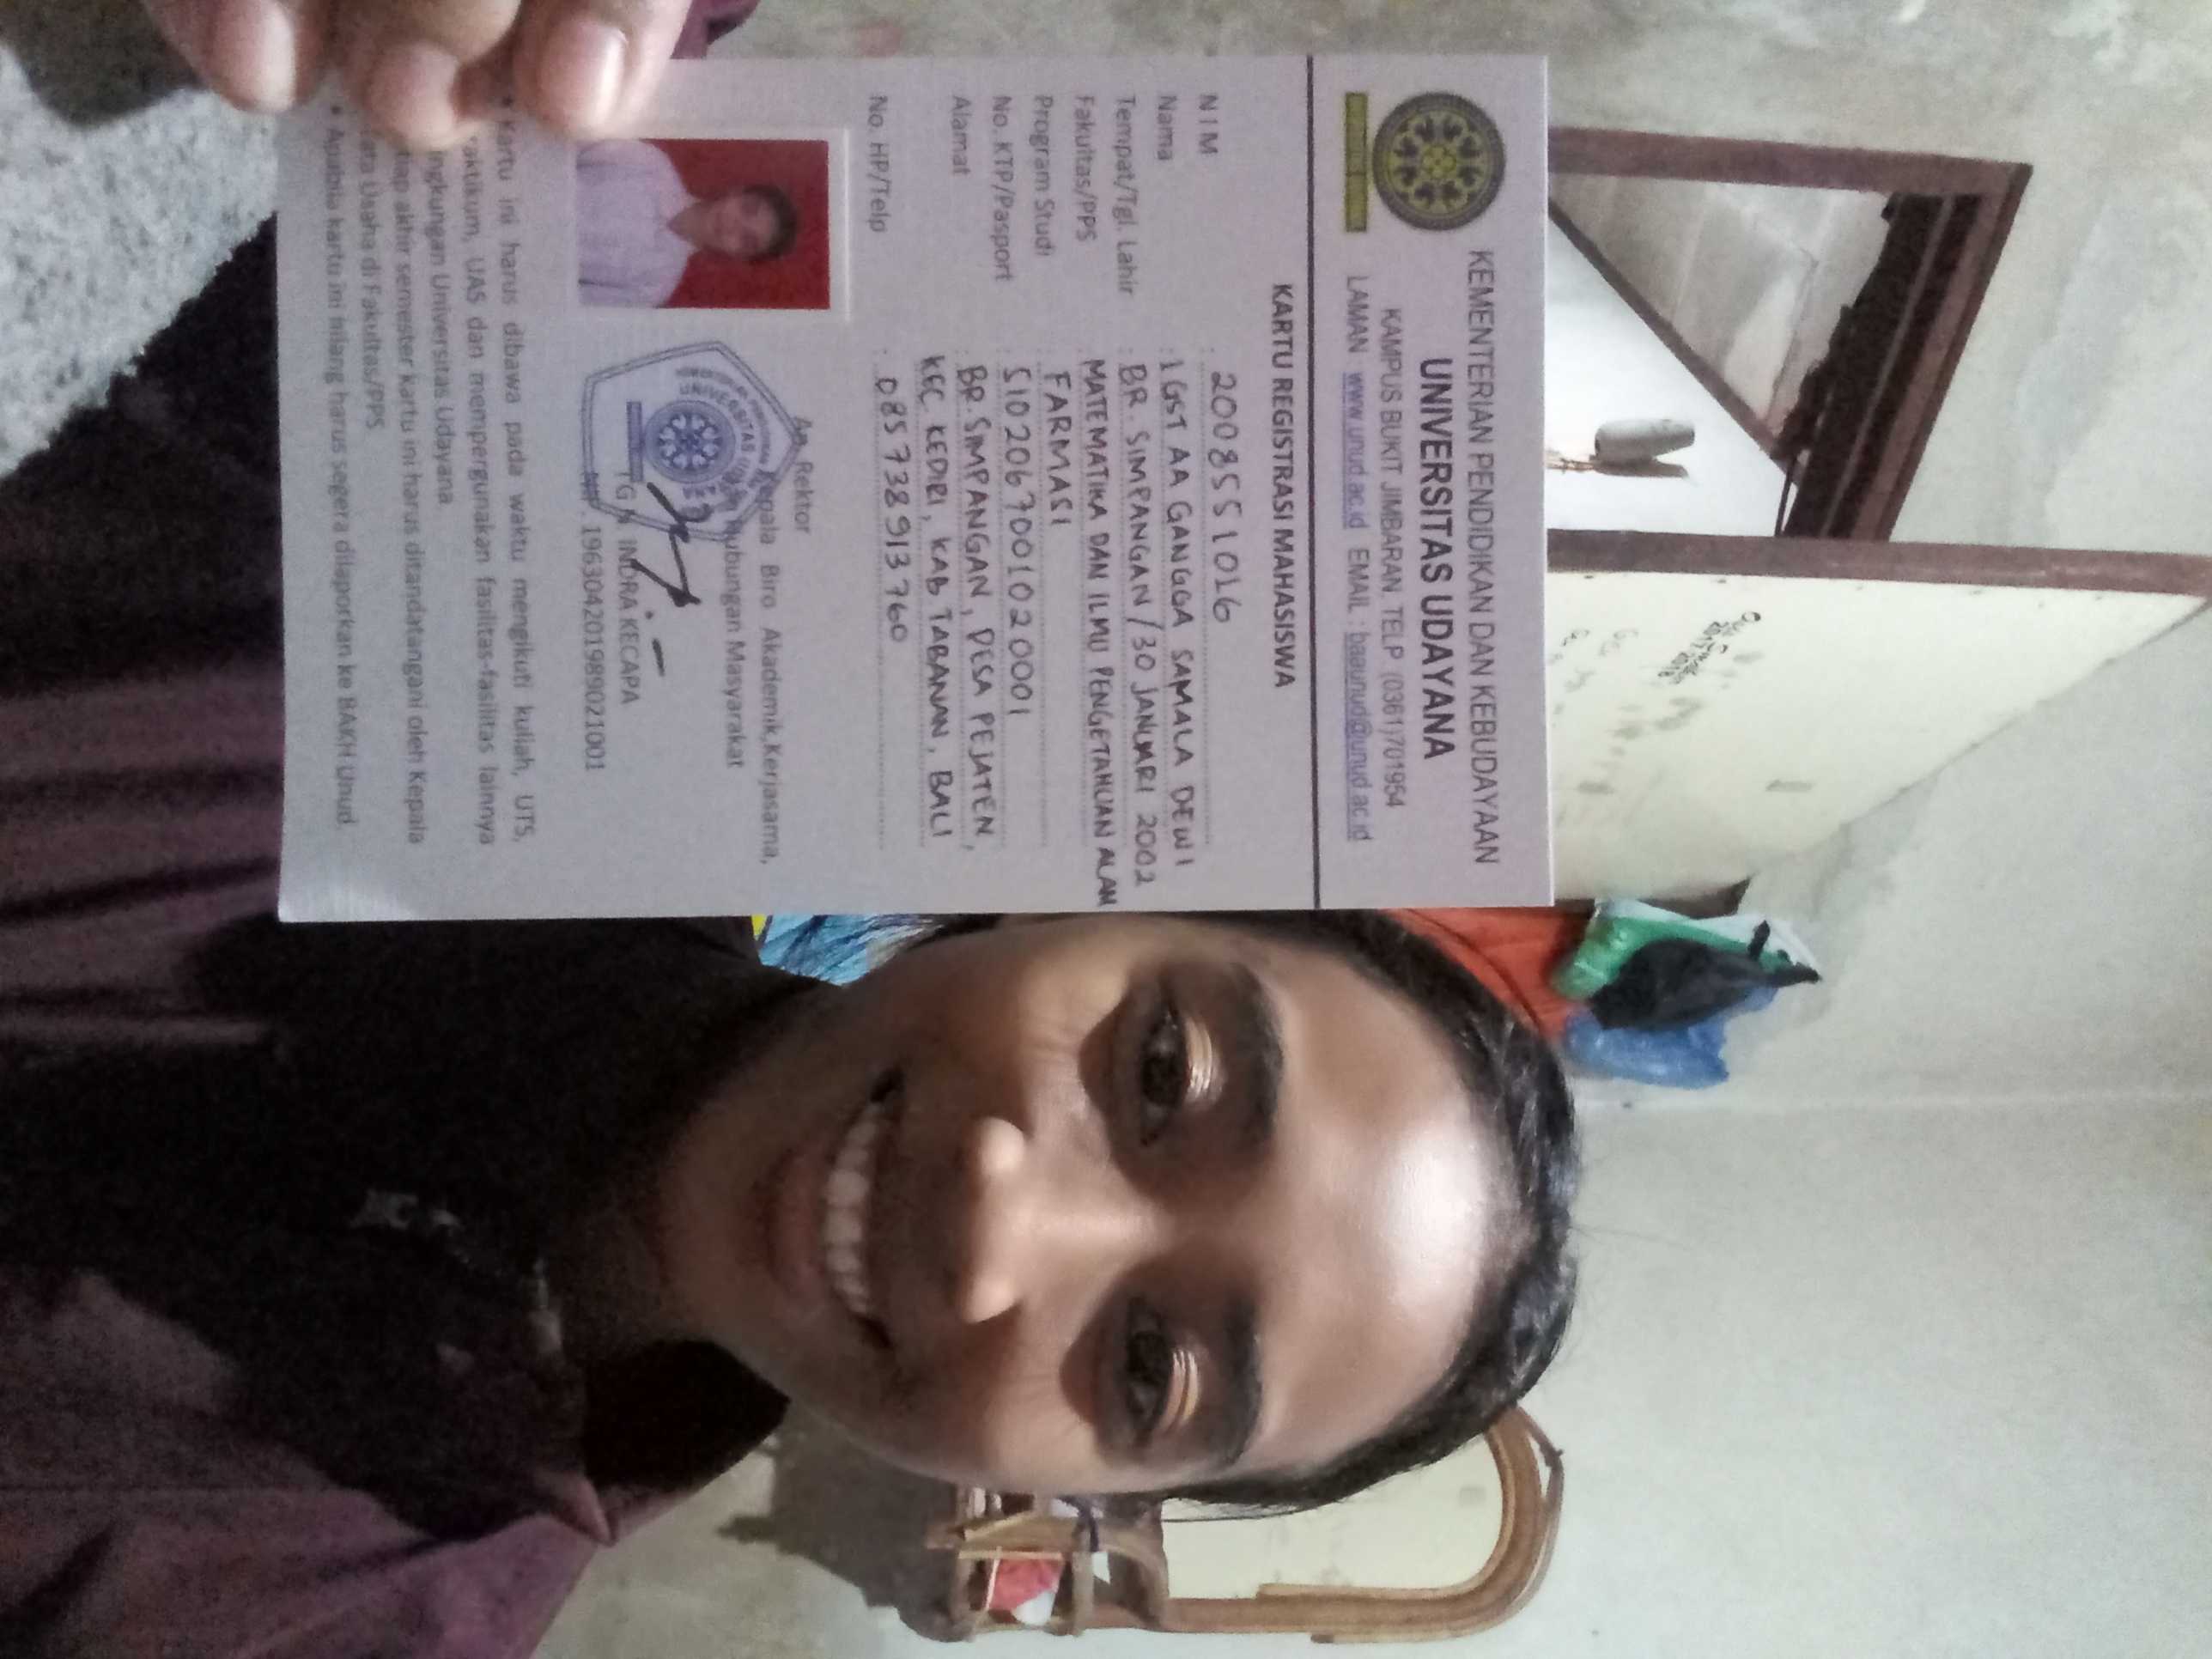 KEMENTERIAN PENDIDIKAN DAN KEBUDAYAAN
UNIVERSITAS UDAYANA
KAMPUS BUKIT JIMBARAN TELP (0361)701954
LAMAN www.unud.ac.id EMAIL : baaunud@unud.ac.id
KARTU REGISTRASI MAHASISWA
N I M : 2008551016
Nama : I GST AA GANGGA SAMALA DEWI
Tempat/Tgl. Lahir : BR. SIMPANGAN / 30 JANUARI 2002
Fakultas/PPS : MATEMATIKA DAN ILMU PENGETAHUAN ALAM
Program Studi : FARMASI
No. KTP/Pasport : 5102067001020001
Alamat : BR. SIMPANGAN, DESA PEJATEN,
KEC KEDIRI, KAB TABANAN, BALI
No. HP/Telp : 085738913760
An. Rektor
Kepala Biro Akademik,Kerjasama,
Hubungan Masyarakat
UNIVERSITAS
I G N INDRA KECAPA
NIP. 196304201989021001
• Kartu ini harus dibawa pada waktu mengikuti kuliah, UTS,
raktikum, UAS dan mempergunakan fasilitas-fasilitas lainnya
ingkungan Universitas Udayana
tiap akhir semester kartu ini harus ditandatangani oleh Kepala
ata Usaha di Fakultas/PPS
• Apabila kartu ini hilang harus segera dilaporkan ke BAKH Unud.